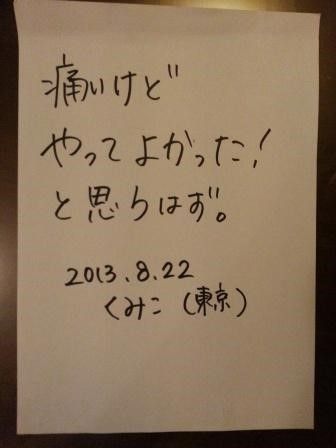 痛いけど
やってよかった!
と思うはず。
2013.8.22
くみこ(東京)